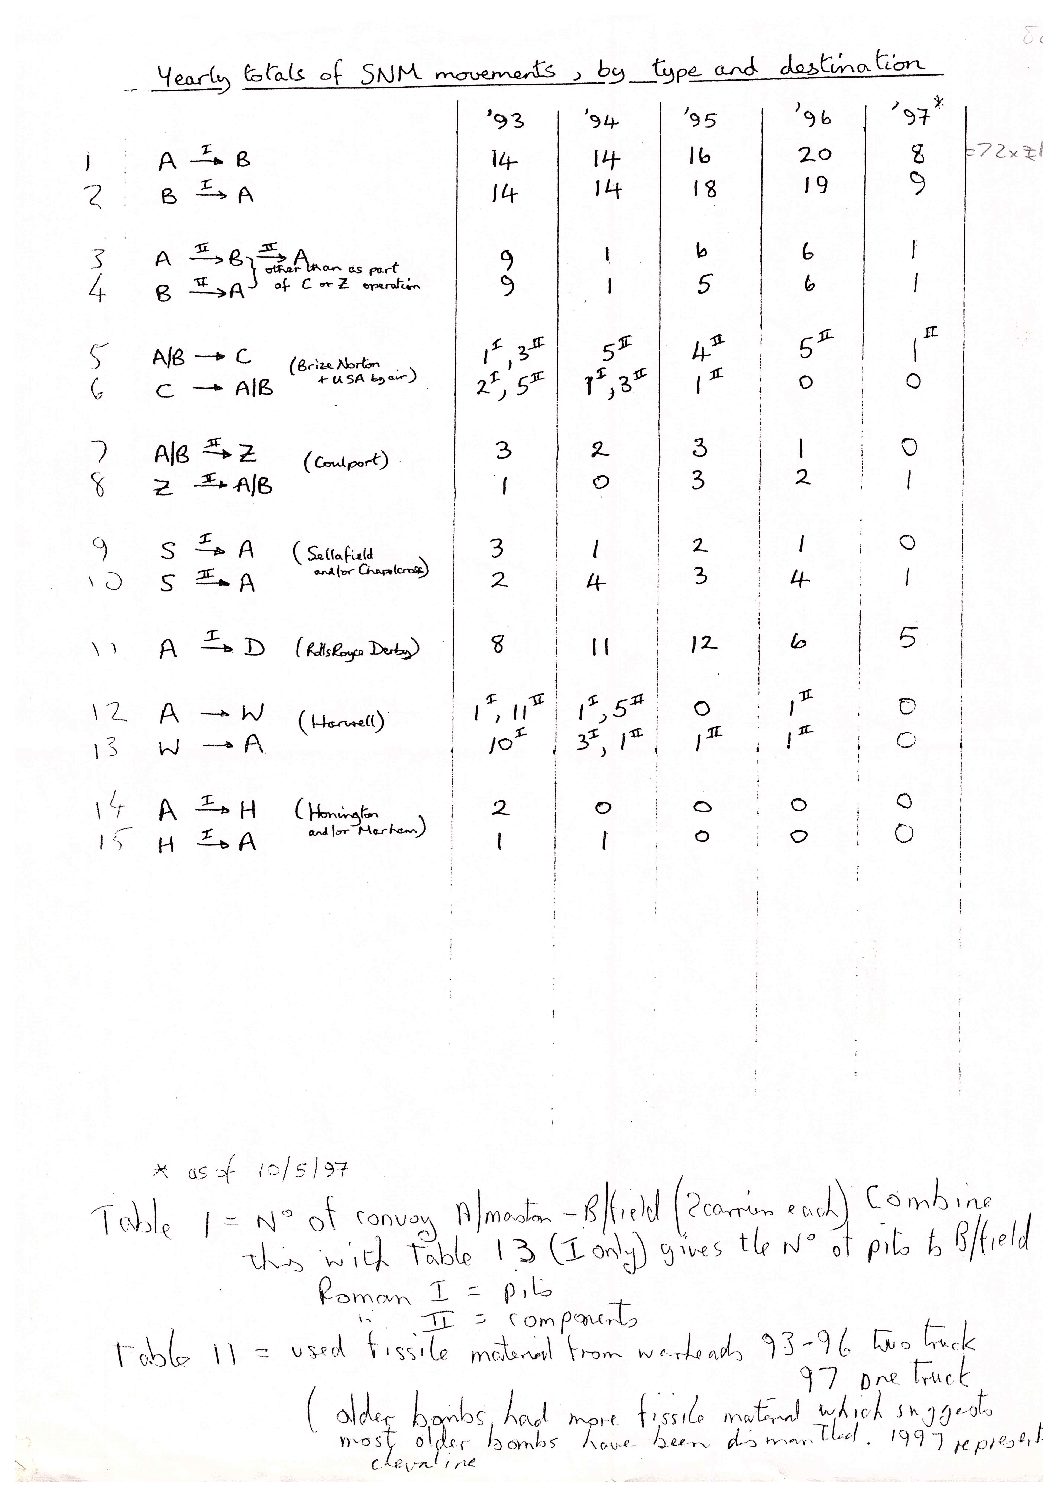 Yearly totals of SNM movements, by type and destination
'93 '94 '95 '96 '97*
1 A I→ B 14 14 16 20 8 =72x
2 B I→ A 14 14 18 19 9
3 A II→ B II→ A 9 1 6 6 1
other than as part
4 B II→ A of C or Z operation 9 1 5 6 1
5 A/B → C (Brize Norton 1^I, 3^II 5^II 4^II 5^II 1^II
+ USA by air)
6 C → A/B 2^I, 5^II 1^I, 3^II 1^II 0 0
7 A/B II→ Z (Coulport) 3 2 3 1 0
8 Z II→ A/B 1 0 3 2 1
9 S I→ A (Sellafield 3 1 2 1 0
and/or Chapelcross)
10 S II→ A 2 4 3 4 1
11 A I→ D (Rolls Royce Derby) 8 11 12 6 5
12 A → W (Harwell) 1^I, 11^II 1^I, 5^II 0 1^II 0
13 W → A 10^I 3^I, 1^II 1^II 1^II 0
14 A I→ H (Honington 2 0 0 0 0
and/or Marham)
15 H I→ A 1 1 0 0 0
* as of 10/5/97
Table 1 = N° of convoy A/maston - B/field (2 carriers each) Combine
this with Table 13 (I only) gives the N° of pits to B/field
Roman I = pits
" II = components
Table 11 = used fissile material from warheads 93-96 two truck
97 one truck
(older bombs, had more fissile material which suggests
most older bombs have been dismantled. 1997 represent
chevaline